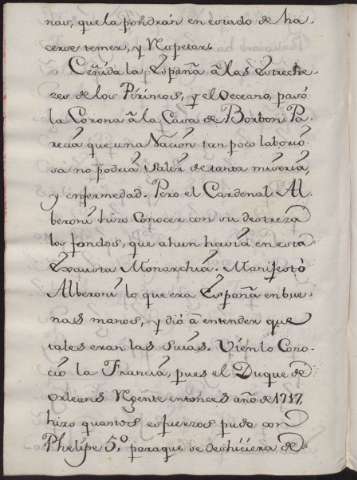 nas, que la pondrán en estado de ha-
cerse temer, y Respetar.
Ceñida la España á las Estreche-
zes de los Pirineos, y el Occeano, pasó
la Corona á la Casa de Borbon. Pa-
recia que una Nacion tan poco laborio-
sa no podria salir de tanta miseria,
y enfermedad. Pero el Cardenal Al-
beroni hizo conocer con su destreza
los fondos, que ahun havia en esta
Exausta Monarchia. Manifestó
Alberoni lo que era España en bue-
nas manos, y dió á entender que
tales eran las suias. Vien lo Cono-
ció la Francia, pues el Duque de
Orleans Regente entonces año de 1717
hizo quantos esfuerzos pudo con
Phelipe 5.º paraque se deshiciera de